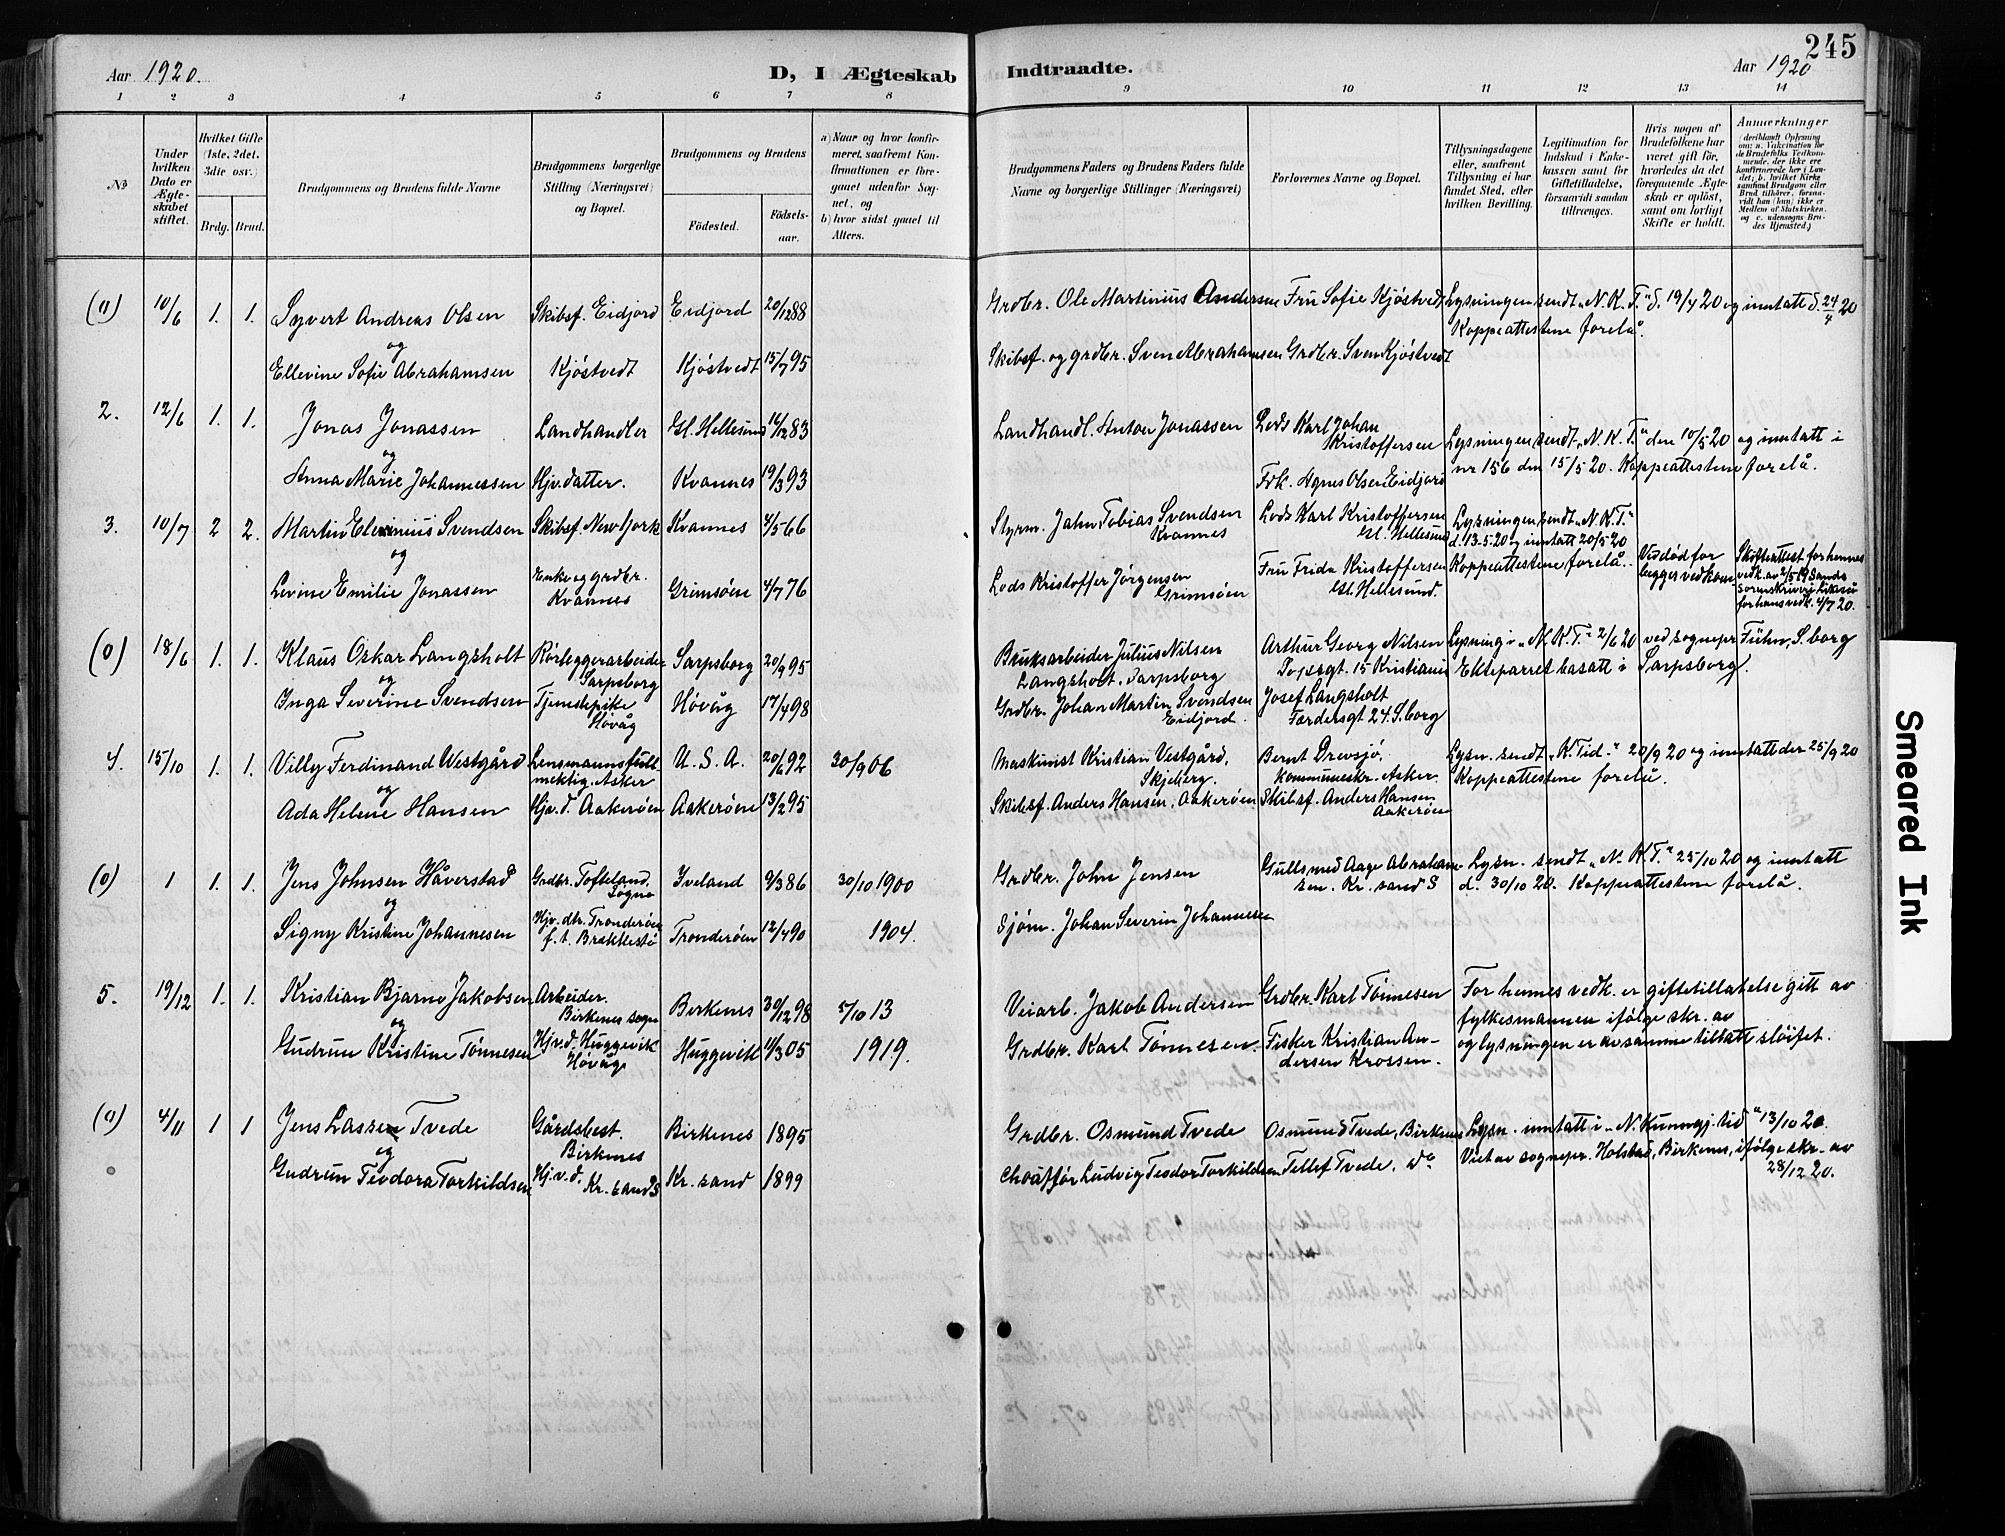 Aar 1920.
D, I Ægteskab Indtraadte.
Aar 1920
245
1 2 3 4 5 6 7 8 9 10 11 12 13 14
No
Under hvilken Dato er Ægteskabet stiftet.
Hvilket Gifte (1ste, 2det, 3die osv.)
Brdg. Brud.
Brudgommens og Brudens fulde Navne
Brudgommens borgerlige Stilling (Næringsvei) og Bopæl.
Brudgommens og Brudens
Fødested.
Fødsels-aar.
a) Naar og hvor konfirmeret, saafremt Konfirmationen er foregaaet udenfor Sognet, og
b) hvor sidst gaaet til Alters.
Brudgommens Faders og Brudens Faders fulde Navne og borgerlige Stillinger (Næringsvei)
Forlovernes Navne og Bopæl.
Tillysningsdagene eller, saafremt Tillysning ei har fundet Sted, efter hvilken Bevilling.
Legitimation for Indskud i Enkekassen samt for Giftetilladelse, forsaavidt saadan tiltrænges.
Hvis nogen af Brudefolkene har været gift før, hvorledes da det foregaaende Ægteskab er opløst, samt om lovligt Skifte er holdt.
Anmerkninger (deriblandt Oplysning om: a. Vaccination for de Brudefolks Vedkommende, der ikke ere konfirmerede her i Landet; b. hvilket Kirkesamfund Brudgom eller Brud tilhører, forsaavidt han (hun) ikke er Medlem af Statskirken, og c. udensogns Brudes Hjemsted.)
(0) 10/6 1. 1. Syvert Andreas Olsen Skibsf. Eidjord Eidjord 20/12 88 Grdbr. Ole Martinius Andersen Fru Sofie Kjøstvedt Lysningen sendt „N. K. T." d. 19/4 20 og inntatt d. 24/4 20
og Koppeattestene forelå.
Ellevine Sofie Abrahamsen Kjøstvedt Kjøstvedt 15/7 95 Skibsf. og grdbr. Sven Abrahamsen Grdbr. Sven Kjøstvedt
2. 12/6 1. 1. Jonas Jonassen Landhandler Gl. Hellesund 14/12 83 Landhandl. Anton Jonassen Lods Karl Johan Kristoffersen Lysningen sendt „N. K. T." den 10/5 20 og inntatt i
og
Anna Marie Johannessen Hjv. datter. Kvannes 19/3 93 Frk. Agnes Olsen Eidjord nr 156 den 15/5 20. Koppeattestene forelå.
3. 10/7 2 2. Martin Elevinius Svendsen Skibsf. New York Kvannes 4/5 66 Styrm. Jahn Tobias Svendsen Kvannes Lods Karl Kristoffersen Gl. Hellesund Lysningen sendt „N. K. T." d. 13-5-20 og inntatt 20/5 20
og Koppeattestene forelå. Ved død for begges vedkom. Skifteattest for hennes vedk. av 2/5 19 Sands sorenskriveri. Likeså for hans vedk. 4/7 20.
Levine Emilie Jonassen Enke og grdbr. Kvannes Grimsøen 4/7 76 Lods Kristoffer Jørgensen Grimsøen Fru Frida Kristoffersen Gl. Hellesund.
(0) 18/6 1. 1. Klaus Oskar Langsholt Rørleggerarbeider Sarpsborg Sarpsborg 20/9 95 Bruksarbeider Julius Nilsen Langsholt, Sarpsborg Arthur Georg Nilsen 15 Kristiania Lysning i „N. K. T." 2/6 20 ved sognepr. Führ, S.borg
og Ekteparret bosatt i Sarpsborg.
Inga Severine Svendsen Tjenestepike Høvåg Høvåg 17/4 98 Grdbr. Johan Martin Svendsen Eidjord. Josef Langsholt Færdersgt 24. S.borg
4. 15/10 1. 1. Villy Ferdinand Westgård Lensmannsfullmektig. Asker U. S. A. 20/6 92 30/9 06 Maskinist Kristian Vestgård, Skjeberg. Bernt Drevsjø, kommuneskr. Asker. Lysn. sendt „K Tid." 20/9 20 og inntatt der 25/9 20
og Koppeattestene forelå.
Ada Helene Hansen Hjv. d. Aakerøen Aakerøen 13/2 95 Skibsf. Anders Hansen, Aakerøen Skibsf. Anders Hansen Aakerøen
(0) 1 1. 1. Jens Johnsen Håverstad Grdbr. Tofteland, Søgne Iveland 9/3 86 30/10 1900 Grdbr. John Jensen Gullsmed Aage Abrahamsen. Kr.sand S Lysn. sendt „N. K. T." 25/10 20 og inntatt
og d. 30/10 20. Koppeattestene forelå.
Signy Kristine Johannesen Hjv. dtr. Tronderøen f. t. Brekkestø Tronderøen 12/4 90 1904. Sjøm. Johan Severin Johannesen
5. 19/12 1. 1. Kristian Bjarne Jakobsen Arbeider. Birkenes sogn Birkenes 30/12 98 5/10 13 Veiarb. Jakob Andersen Grdbr. Karl Tønnesen For hennes vedk. er giftetillatelse gitt av
og fylkesmannen ifølge skr. av
Gudrun Kristine Tønnesen Hjv. d. Huggevik Høvåg Huggevik 11/3 05 1919. Grdbr. Karl Tønnesen. Fisker Kristian Andersen Krossen. og lysningen er av samme tillatt sløifet.
(0) 4/11 1 1 Jens Lassen Tvede Gårdsbest. Birkenes Birkenes 1895 Grdbr. Osmund Tvede Osmund Tvede, Birkenes Lysn. inntatt i „N. Kunngj. tid" 13/10 20.
og
Gudrun Teodora Torkildsen Hj. v. d. Kr.sand S Kr.sand 1899 Chauffør Ludvig Teodor Torkildsen Tellef Tvede, do Viet av sognepr. Holstad, Birkenes, ifølge skr. av 28/12 20.
Smeared Ink